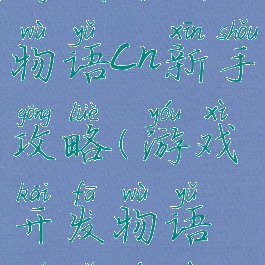 wù yǔ xīn shǒu
物语cn新手
gōng lüè yóu xì
攻略(游戏
kāi fā wù yǔ
开发物语